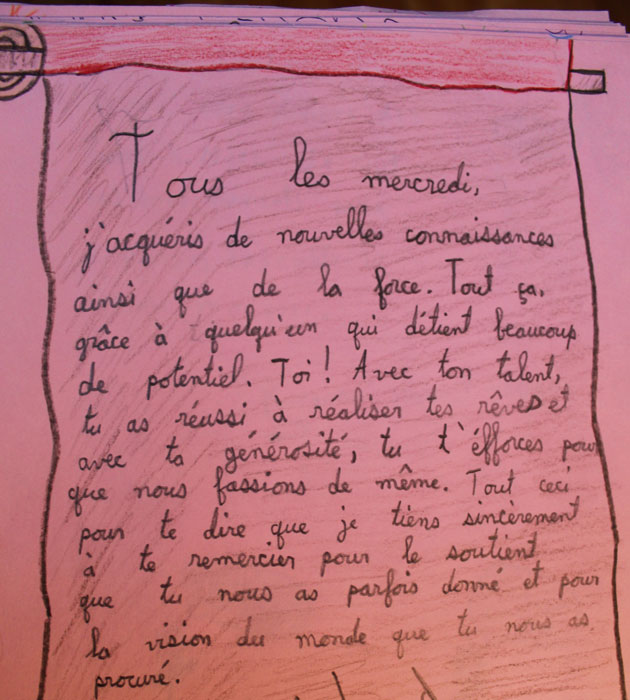 Tous les mercredi,
j'acquéris de nouvelles connaissances
ainsi que de la force. Tout ça,
grâce à quelqu'un qui détient beaucoup
de potentiel. Toi! Avec ton talent,
tu as réussi à réaliser tes rêves et
avec ta générosité, tu t'éfforces pour
que nous fassions de même. Tout ceci
pour te dire que je tiens sincèrement
à te remercier pour le soutient
que tu nous as parfois donné et pour
la vision du monde que tu nous as
procuré.